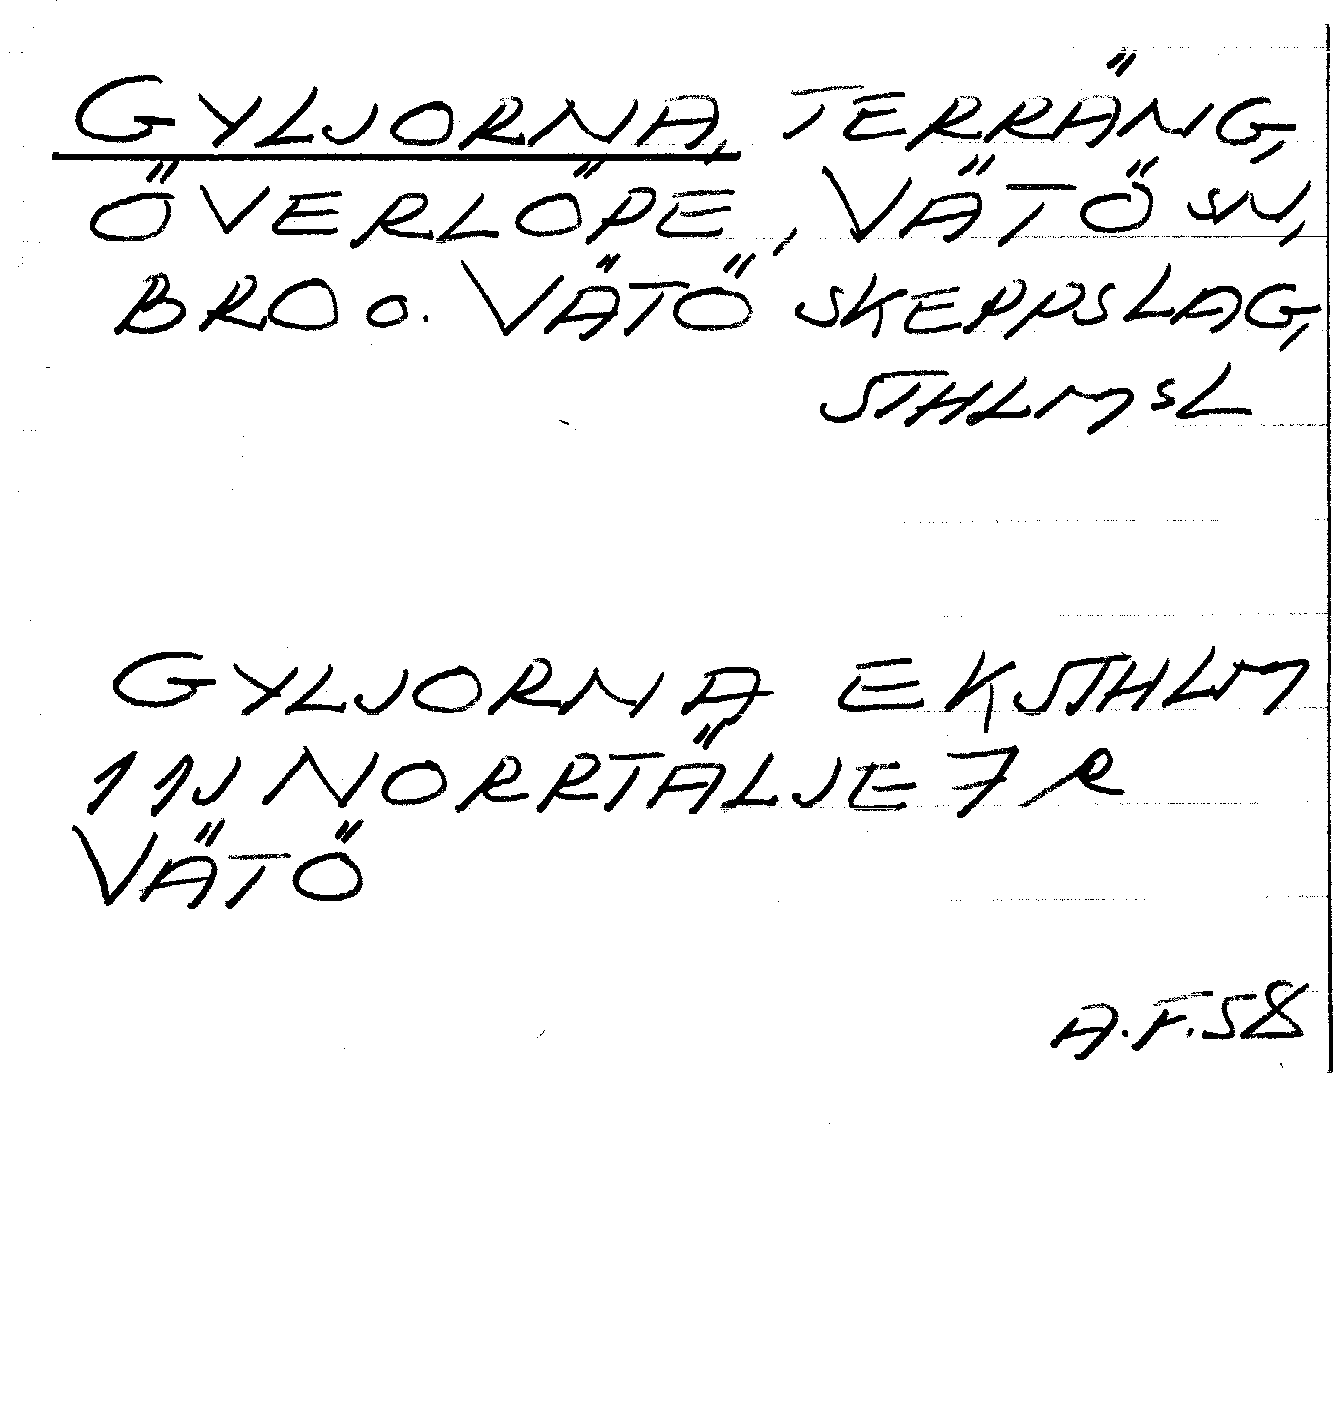 GYLJORNA, TERRÄNG,
ÖVERLÖPE, VÄTÖ SN,
BRO O. VÄTÖ SKEPPSLAG,
STHLMS L
GYLJORNA EK STHLM
11J NORRTÄLJE 7 R
VÄTÖ
A.F. 58